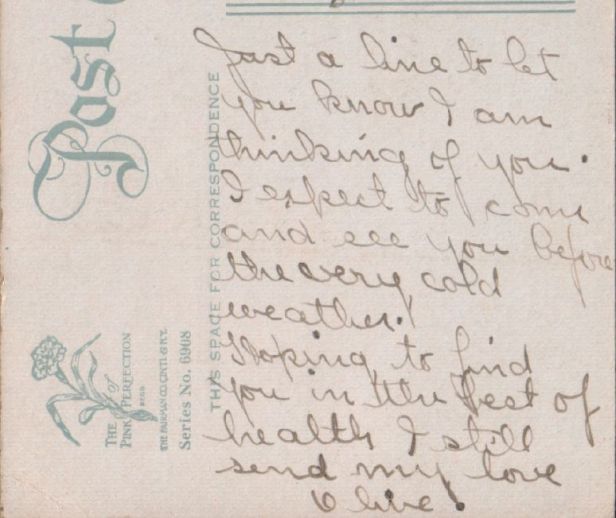 Just a line to let
you know I am
thinking of you.
I expect to come
and see you before
the very cold
weather.
Hoping to find
you in the best of
health I still
send my love
Olive.
Post
THIS SPACE FOR CORRESPONDENCE
THE
PINK OF PERFECTION
REGD
THE FAIRMAN CO. CINTI. & N.Y.
Series No. 6908